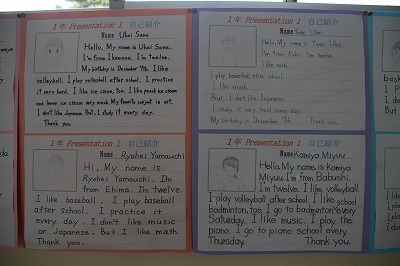 1年 Presentation 1 自己紹介
Name Ukai Sana
Hello. My name is Ukai Sana.
I'm from Ikamasu. I'm twelve.
My birthday is December 7th. I like
volleyball. I play volleyball after school. I practice
it very hard. I like ice cream, too. I like peach ice cream
and lemon ice cream very much. My favorite subject is art.
I don't like Japanese. But, I study it every day.
Thank you.
1年 Presentation 1 自己紹介
Name Ukai
Hello. My name is Ukai
I'm from I'm twelve.
I like
I play basketball after school.
I like math.
But, I don't like Japanese.
I study it very hard every day.
My birthday is December 7th. Thank you.
1年 Presentation 1 自己紹介
Name Ryohei Yamauchi
Hi, My name is
Ryohei Yamauchi. I'm
from Ehima. I'm twelve.
I like baseball. I play baseball
after school. I practice it
every day. I don't like music
or Japanese. But I like math.
Thank you.
1年 Presentation 1 自己紹介
Name Kamiya Miyuu
Hello. My name is Kamiya
Miyuu. I'm from Babushi.
I'm twelve. I like volleyball.
I play volleyball after school. I like school
badminton, too. I go to badminton every
Saturday. I like music. I play the
piano. I go to piano school every
Thursday. Thank you.